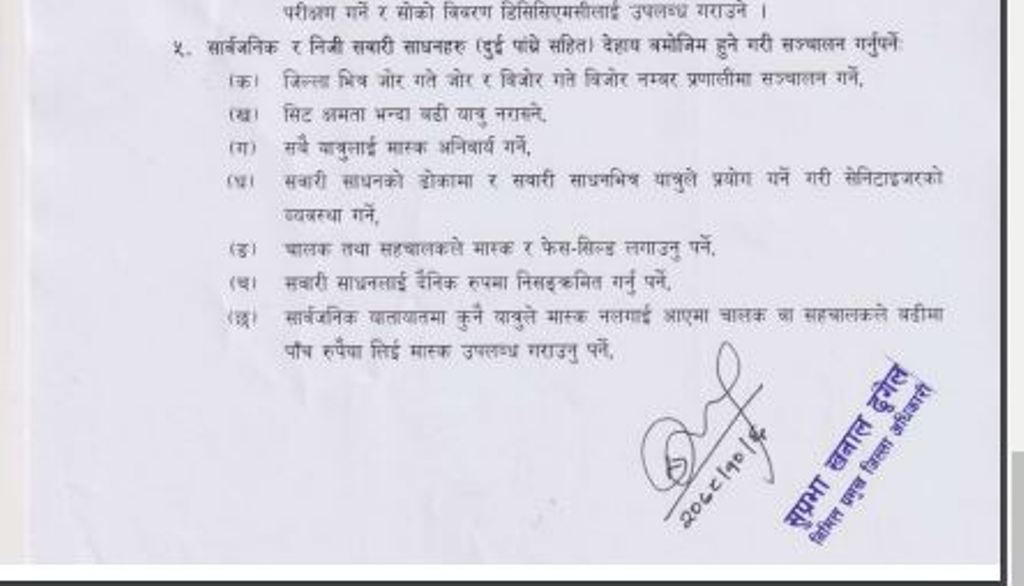 परीक्षण गर्ने र सोको विवरण डिसिसिएमसीलाई उपलब्ध गराउने ।
५. सार्वजनिक र निजी सवारी साधनहरु (दुई पांग्रे सहित) देहाय बमोजिम हुने गरी सञ्चालन गर्नुपर्नेः
(क) जिल्ला भित्र जोर गते जोर र विजोर गते विजोर नम्बर प्रणालीमा सञ्चालन गर्ने,
(ख) सिट क्षमता भन्दा बढी यात्रु नराख्ने,
(ग) सबै यात्रुलाई मास्क अनिवार्य गर्ने,
(घ) सवारी साधनको ढोकामा र सवारी साधनभित्र यात्रुले प्रयोग गर्ने गरी सेनिटाइजरको
व्यवस्था गर्ने,
(ङ) चालक तथा सहचालकले मास्क र फेस-सिल्ड लगाउनु पर्ने,
(च) सवारी साधनलाई दैनिक रुपमा निसङ्क्रमित गर्नु पर्ने,
(छ) सार्वजनिक यातायातमा कुनै यात्रुले मास्क नलगाई आएमा चालक वा सहचालकले बढीमा
पाँच रुपैया लिई मास्क उपलब्ध गराउनु पर्ने,
२०७८।१०।६
सुप्रभा खनाल ढुंगेल
निमित्त प्रमुख जिल्ला अधिकारी